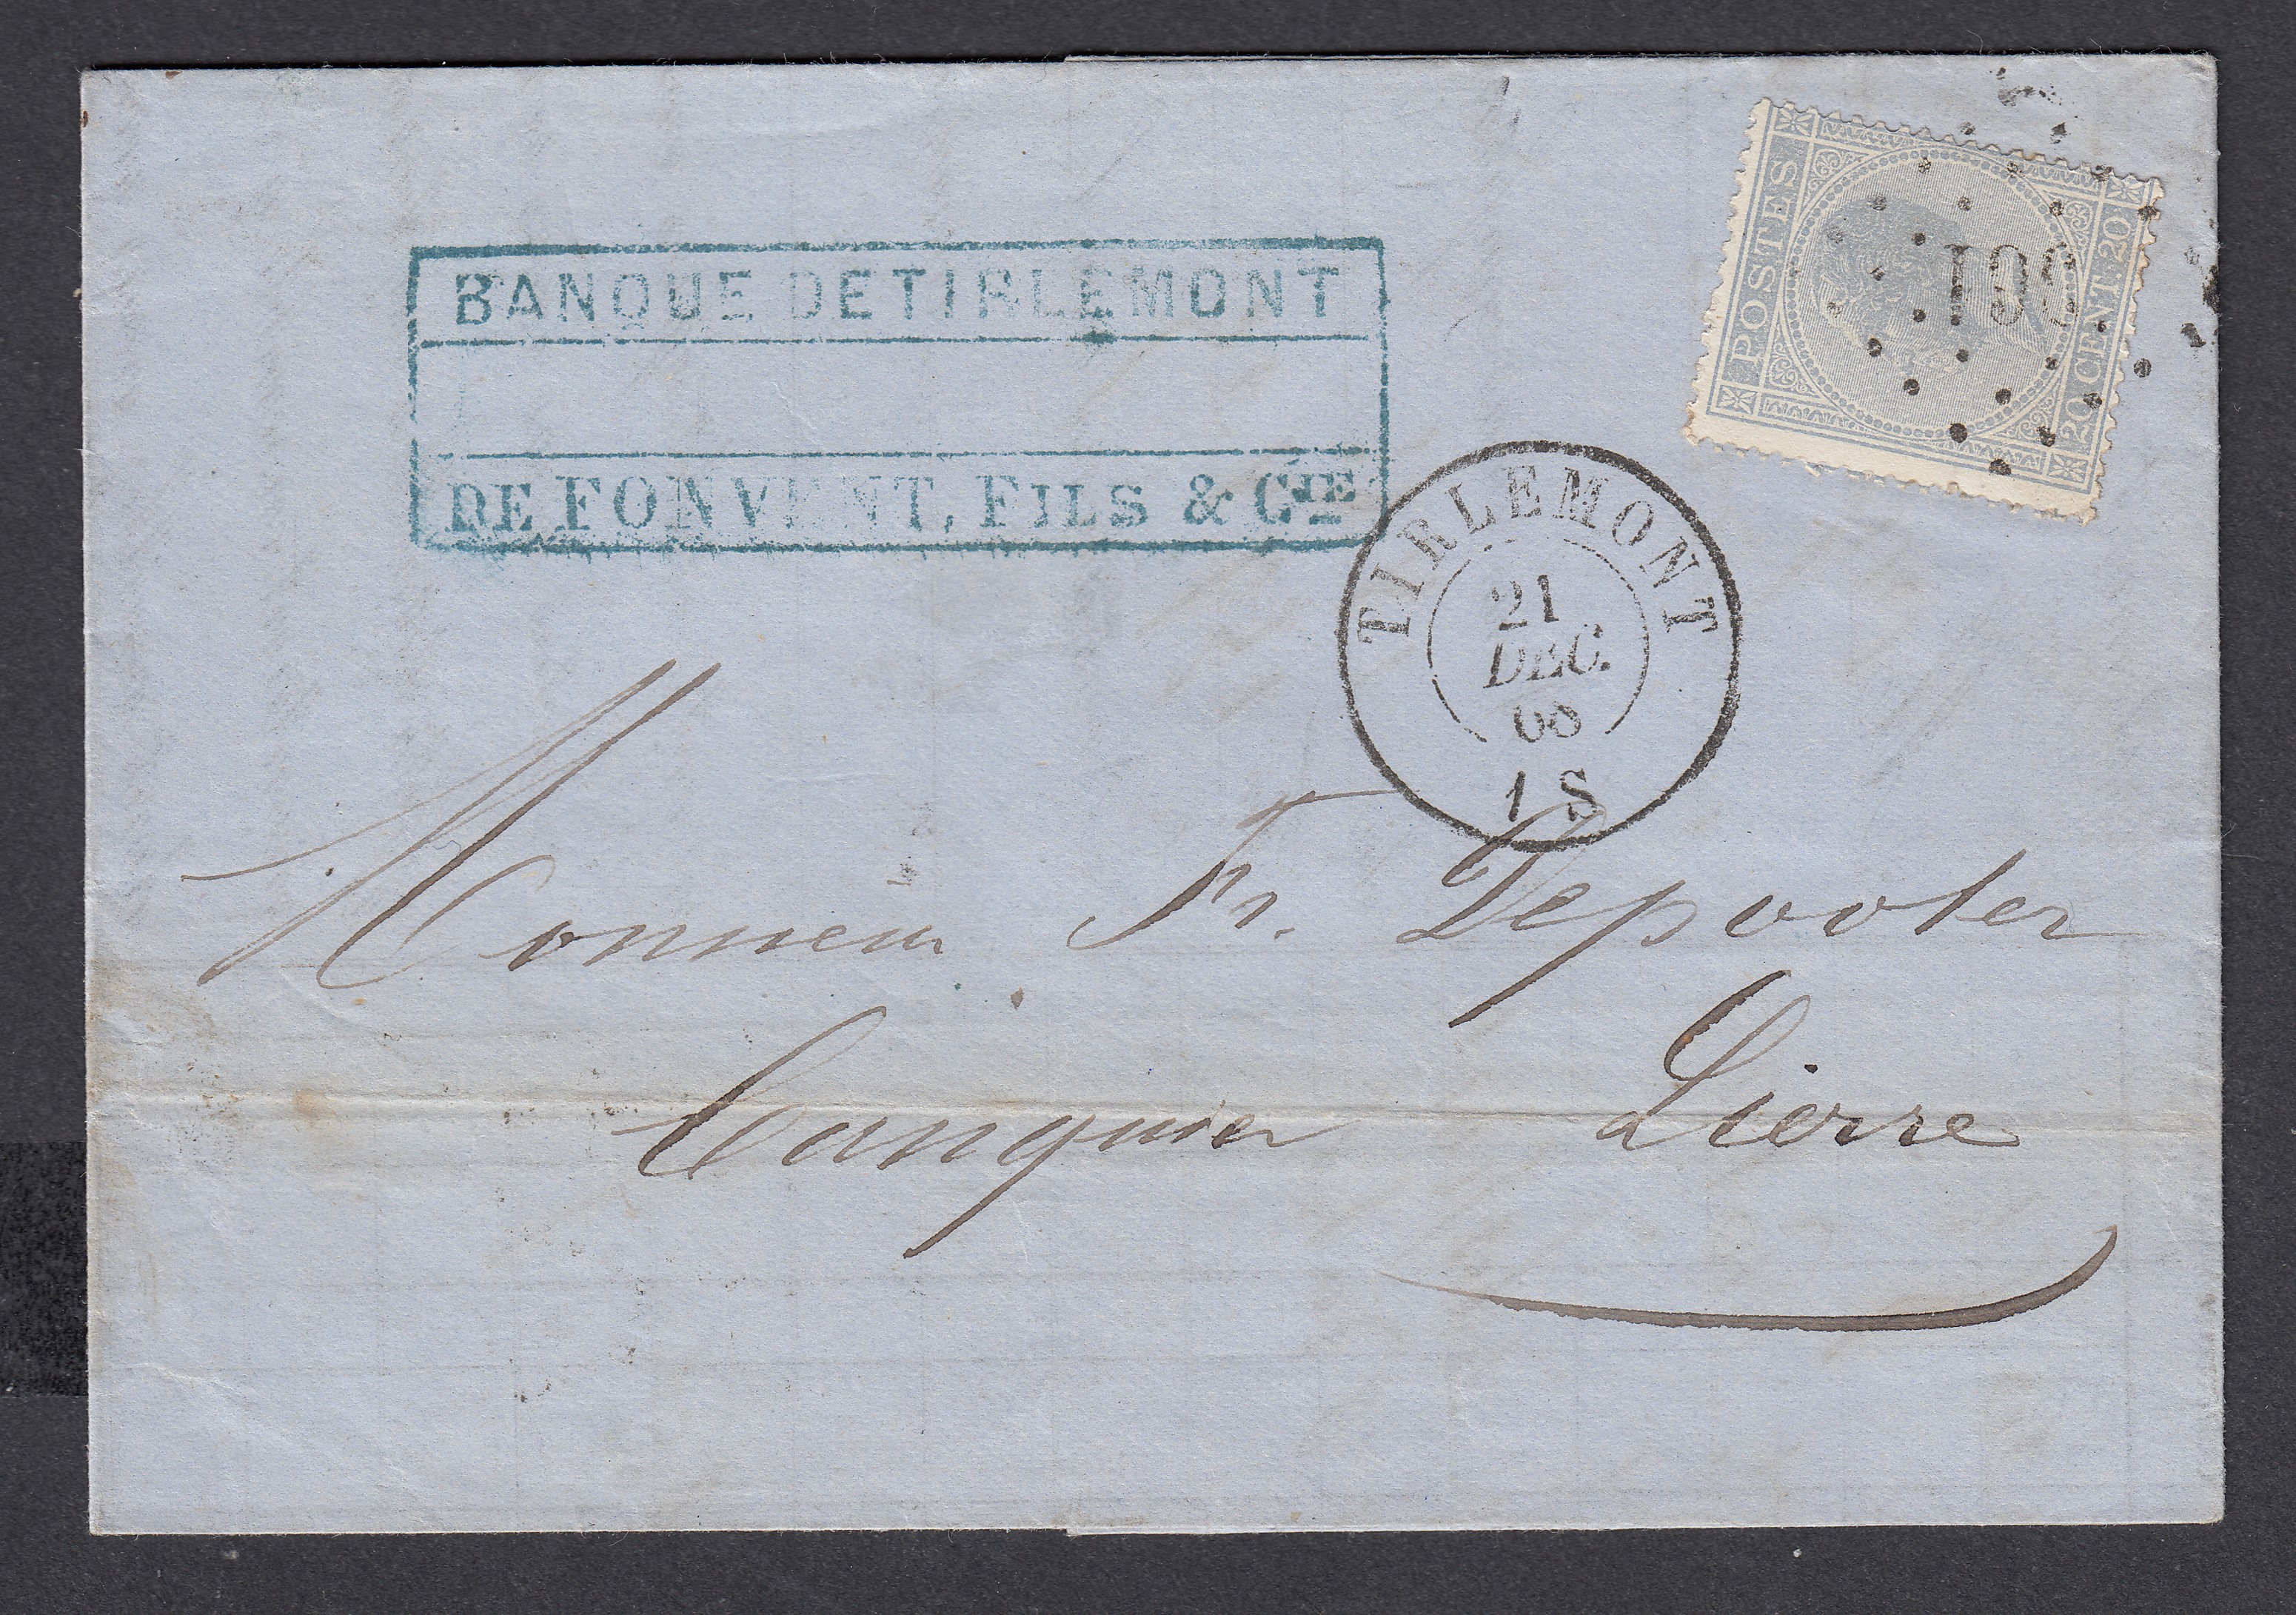 BANQUE DE TIRLEMONT
DE FONVENT, FILS & CIE
POSTES
20 CENT. 20
TIRLEMONT
21
DEC.
68
1 S
Monsieur Fr. Depooter
banquier Lierre